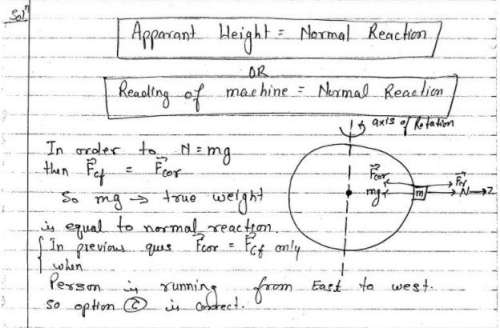 Solⁿ
Apparant Weight = Normal Reaction
OR
Reading of machine = Normal Reaction
axis of Rotation
In order to N = mg
then F⃗cf = F⃗cor
So mg → true weight
is equal to normal reaction.
F⃗cor
mg
m
F⃗cf
N
In previous ques F⃗cor = F⃗cf only
when
Person is running from East to west.
so option (C) is correct.